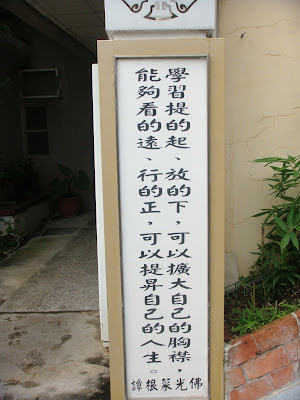 學習提的起、放的下，可以擴大自己的胸襟，
能夠看的遠、行的正，可以提昇自己的人生。
佛光菜根譚